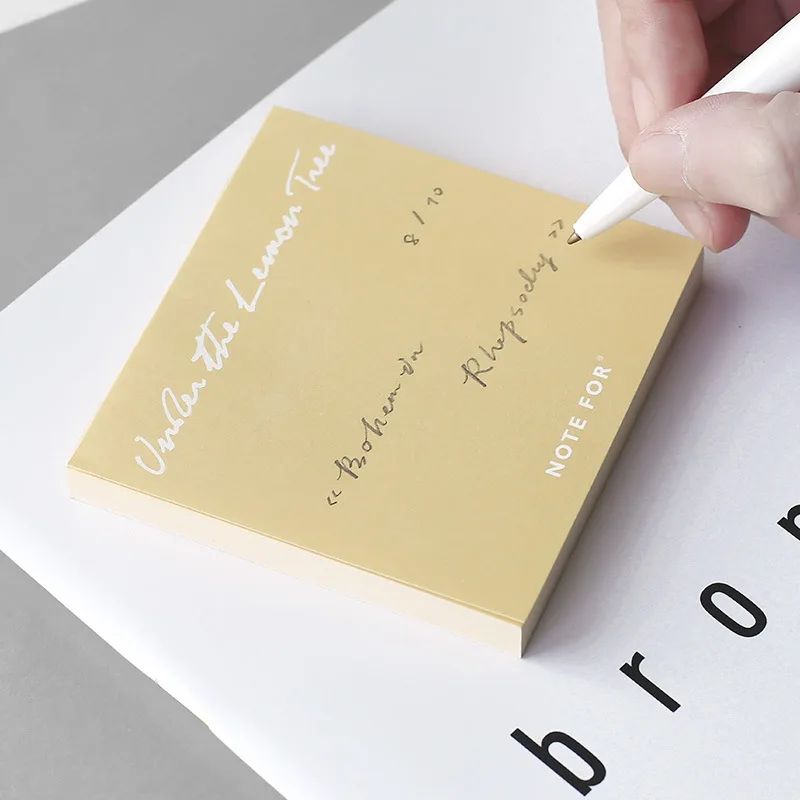 Under the Lemon Tree
8/10
《Bohemian
Rhapsody》
NOTE FOR®
bron